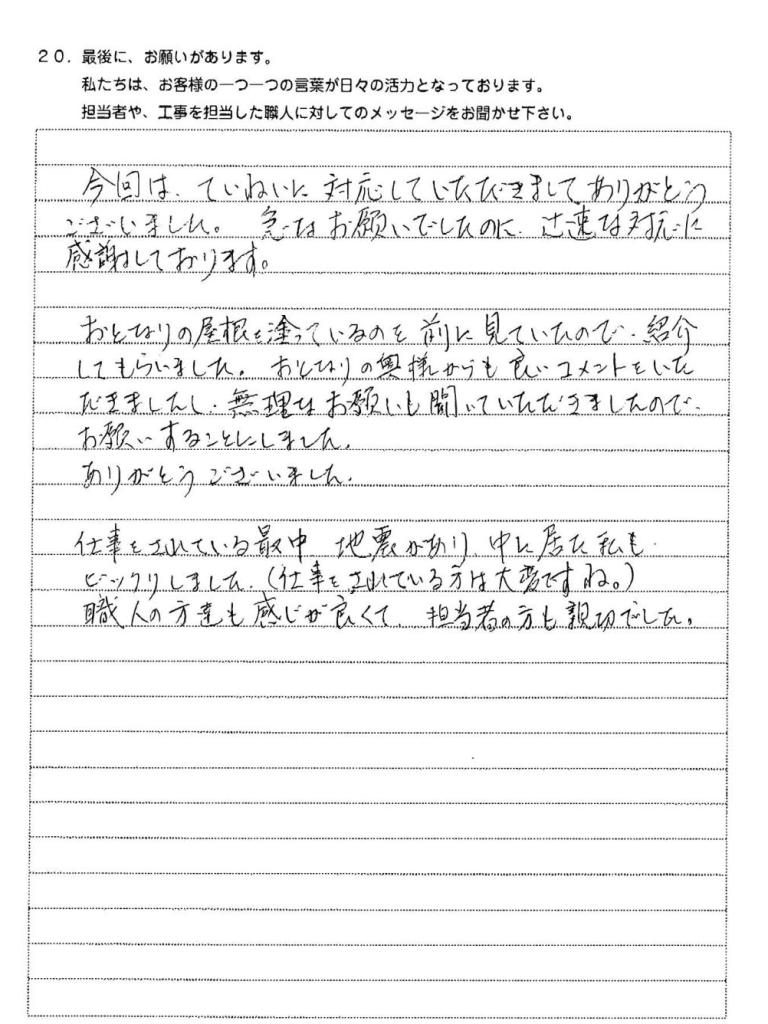 20. 最後に、お願いがあります。
私たちは、お客様の一つ一つの言葉が日々の活力となっております。
担当者や、工事を担当した職人に対してのメッセージをお聞かせ下さい。
今回は、ていねいに対応していただきましてありがとう
ございました。急なお願いでしたのに、迅速な対応に
感謝しております。
おとなりの屋根を塗っているのを前に見ていたので、紹介
してもらいました。おとなりの奥様からも良いコメントをいた
だきましたし、無理なお願いも聞いていただきましたので、
お願いすることにしました。
ありがとうございました。
仕事をされている最中、地震があり、中に居た私も
ビックリしました。(仕事をされている方は大変ですね。)
職人の方達も感じが良くて、担当者の方も親切でした。